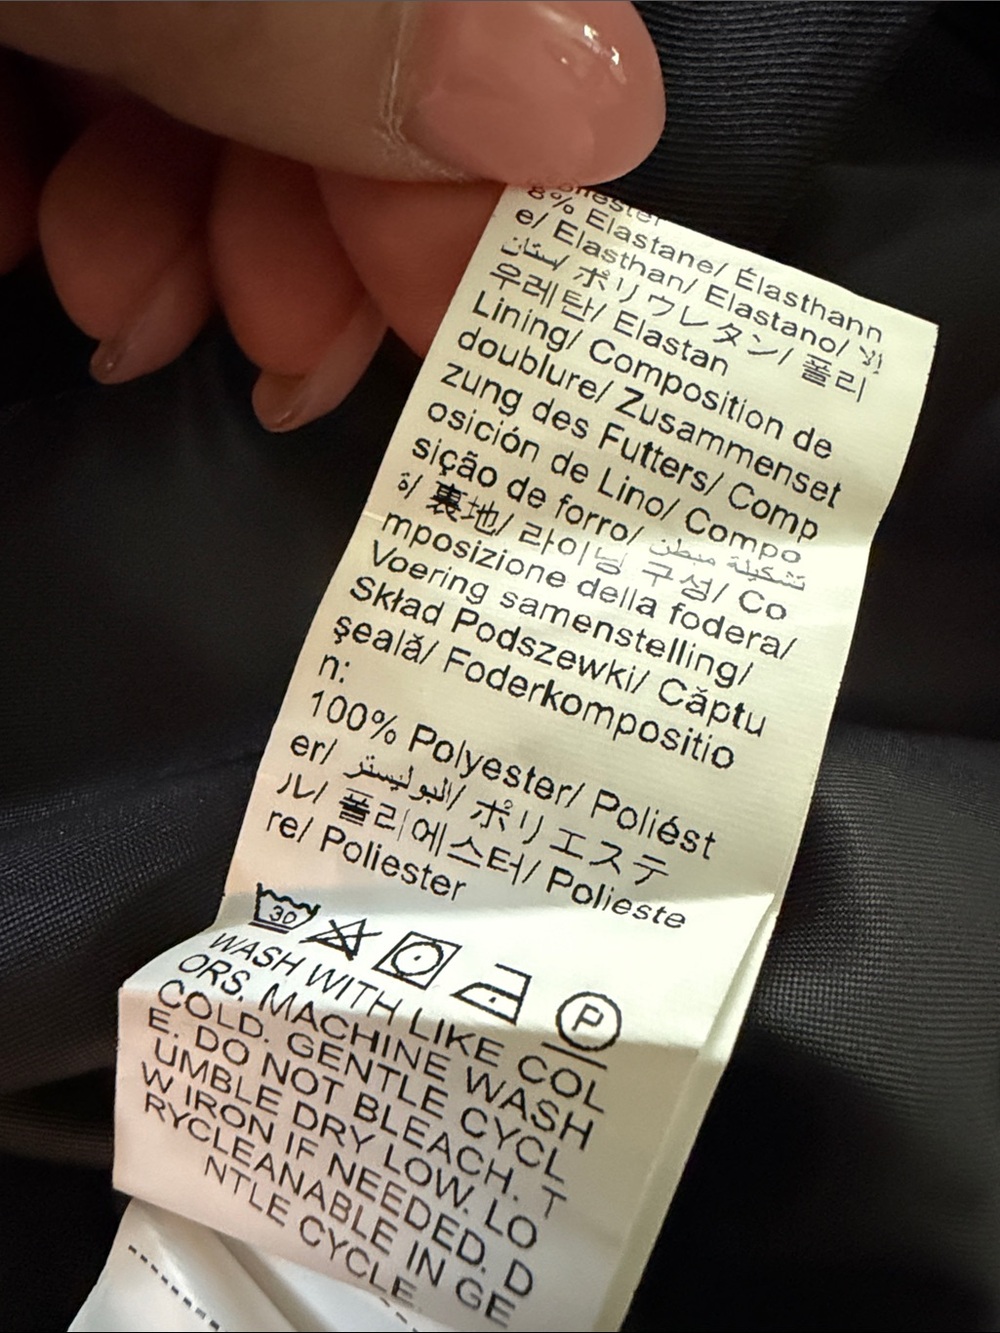 8% Elastane/ Élasthann
e/ Elasthan/ Elastano/ إلا
ستان/ ポリウレタン/ 폴리
우레탄/ Elastan
Lining/ Composition de
doublure/ Zusammenset
zung des Futters/ Comp
osición de Lino/ Compo
sição de forro/ تشكيلة مبطن
ة/ 裏地/ 라이닝 구성/ Co
mposizione della fodera/
Voering samenstelling/
Skład Podszewki/ Căptu
şeală/ Foderkompositio
n:
100% Polyester/ Poliést
er/ البوليستر/ ポリエステ
ル/ 폴리에스터/ Polieste
re/ Poliester
30
P
WASH WITH LIKE COL
ORS. MACHINE WASH
COLD. GENTLE CYCL
E. DO NOT BLEACH. T
UMBLE DRY LOW. LO
W IRON IF NEEDED. D
RYCLEANABLE IN GE
NTLE CYCLE.